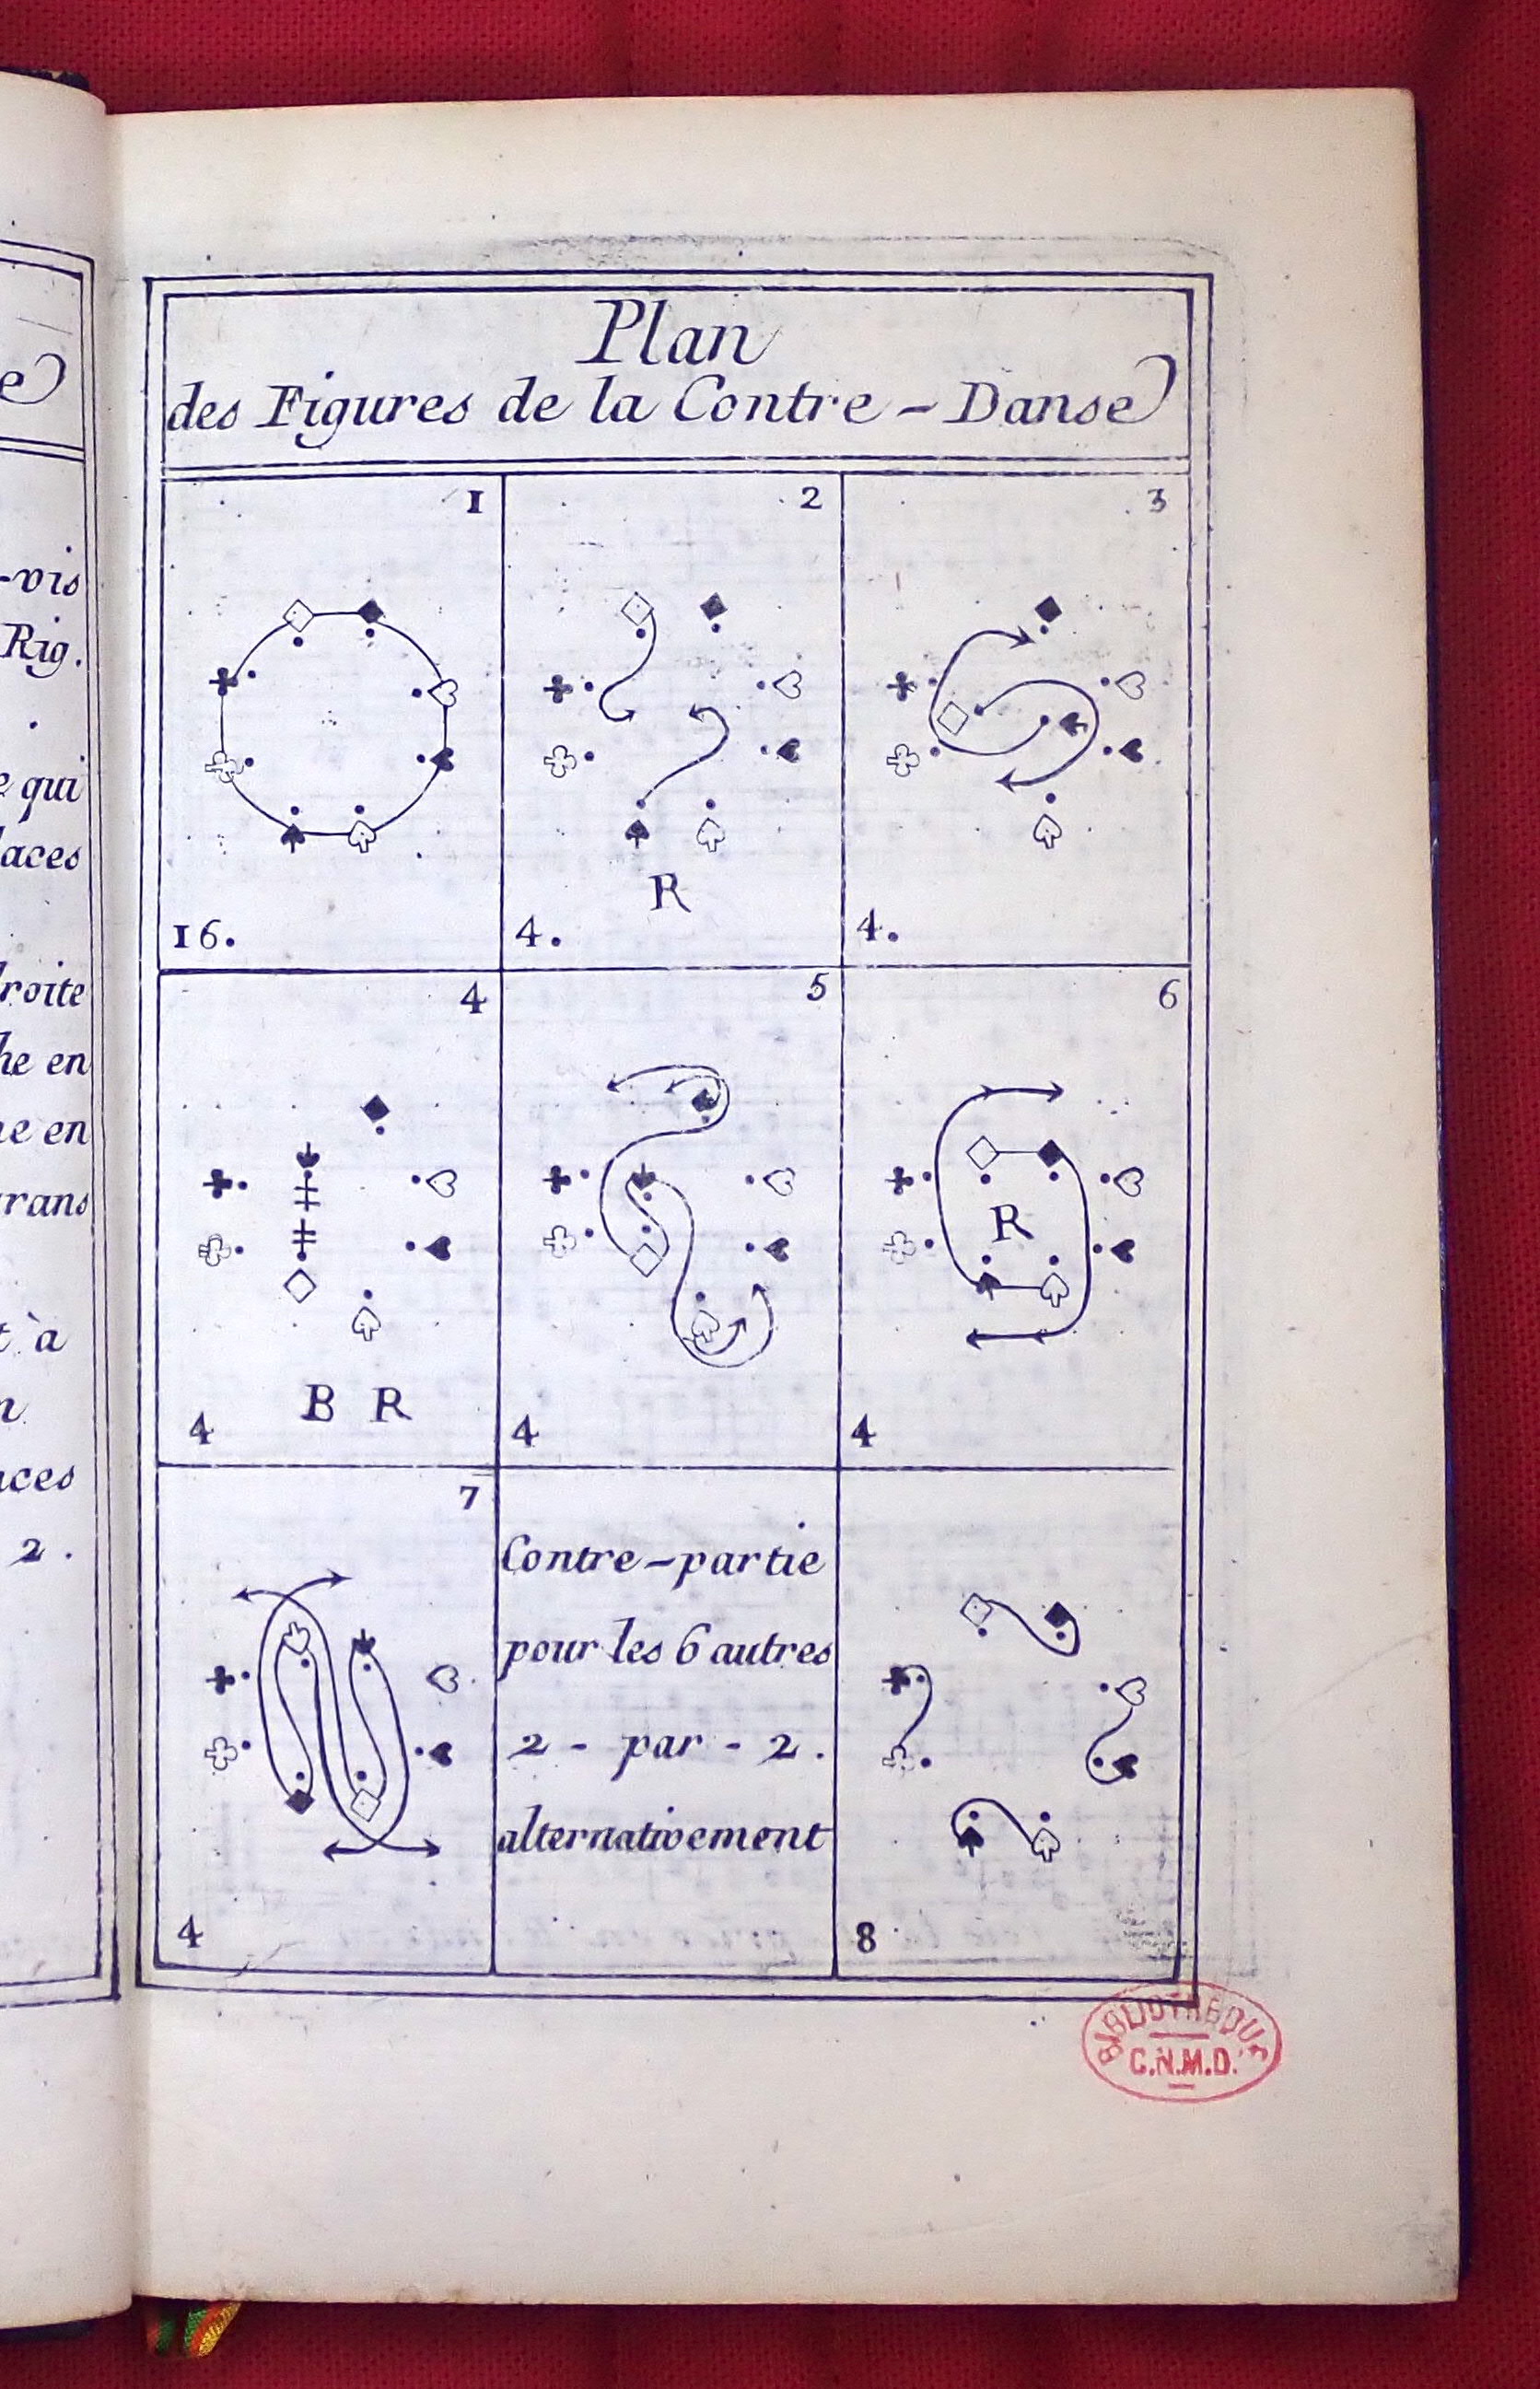 e
-vis
Rig.
.
e qui
aces
droite
he en
ne en
rans
t à
n
aces
2.
Plan
des Figures de la Contre-Danse
1
16.
2
R
4.
3
4.
4
B R
4
5
4
6
R
4
7
4
Contre-partie
pour les 6 autres
2 - par - 2.
alternativement
8
BIBLIOTHÈQUE
C.N.M.D.